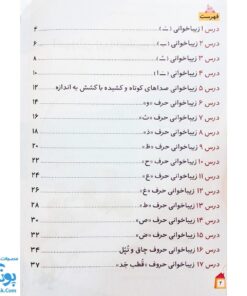 فهرست
درس ۱ زیباخوانی (ـَـ) ۴
درس ۲ زیباخوانی (ـِـ) ۶
درس ۳ زیباخوانی (ـُـ) ۸
درس ۴ زیباخوانی (ـَـ ا) ۱۰
درس ۵ زیباخوانی صداهای کوتاه و کشیده با کشش به اندازه ۱۲
درس ۶ زیباخوانی حرف «و» ۱۴
درس ۷ زیباخوانی حرف «ث» ۱۶
درس ۸ زیباخوانی حرف «ذ» ۱۸
درس ۹ زیباخوانی حرف «ظ» ۲۰
درس ۱۰ زیباخوانی حرف «ح» ۲۲
درس ۱۱ زیباخوانی حرف «ع» ۲۴
درس ۱۲ زیباخوانی حرف «غ» ۲۶
درس ۱۳ زیباخوانی حرف «ط» ۲۸
درس ۱۴ زیباخوانی حرف «ص» ۳۰
درس ۱۵ زیباخوانی حرف «ض» ۳۲
درس ۱۶ زیباخوانی حروف چاق و تُپُل ۳۴
درس ۱۷ زیباخوانی حروف «قُطب جَد» ۳۷
۲